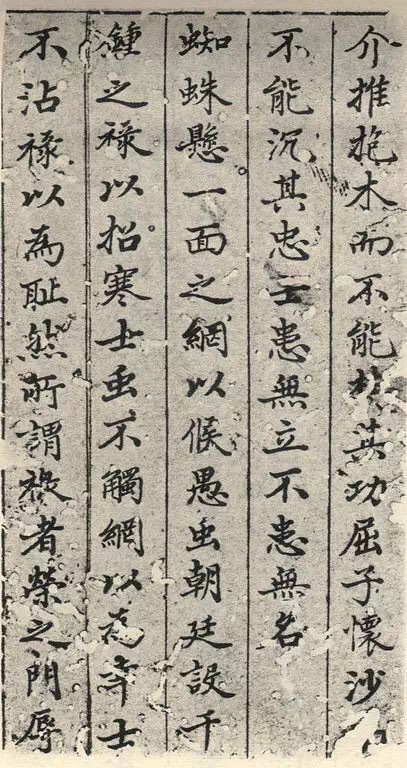 介推抱木而不能其功屈子懷沙
不能沉其忠士患無立不患無名
蜘蛛懸一面之網以候愚虫朝廷設千
鍾之祿以招寒士虫不觸網以為幸士
不沾祿以為恥然所謂祿者榮之門辱